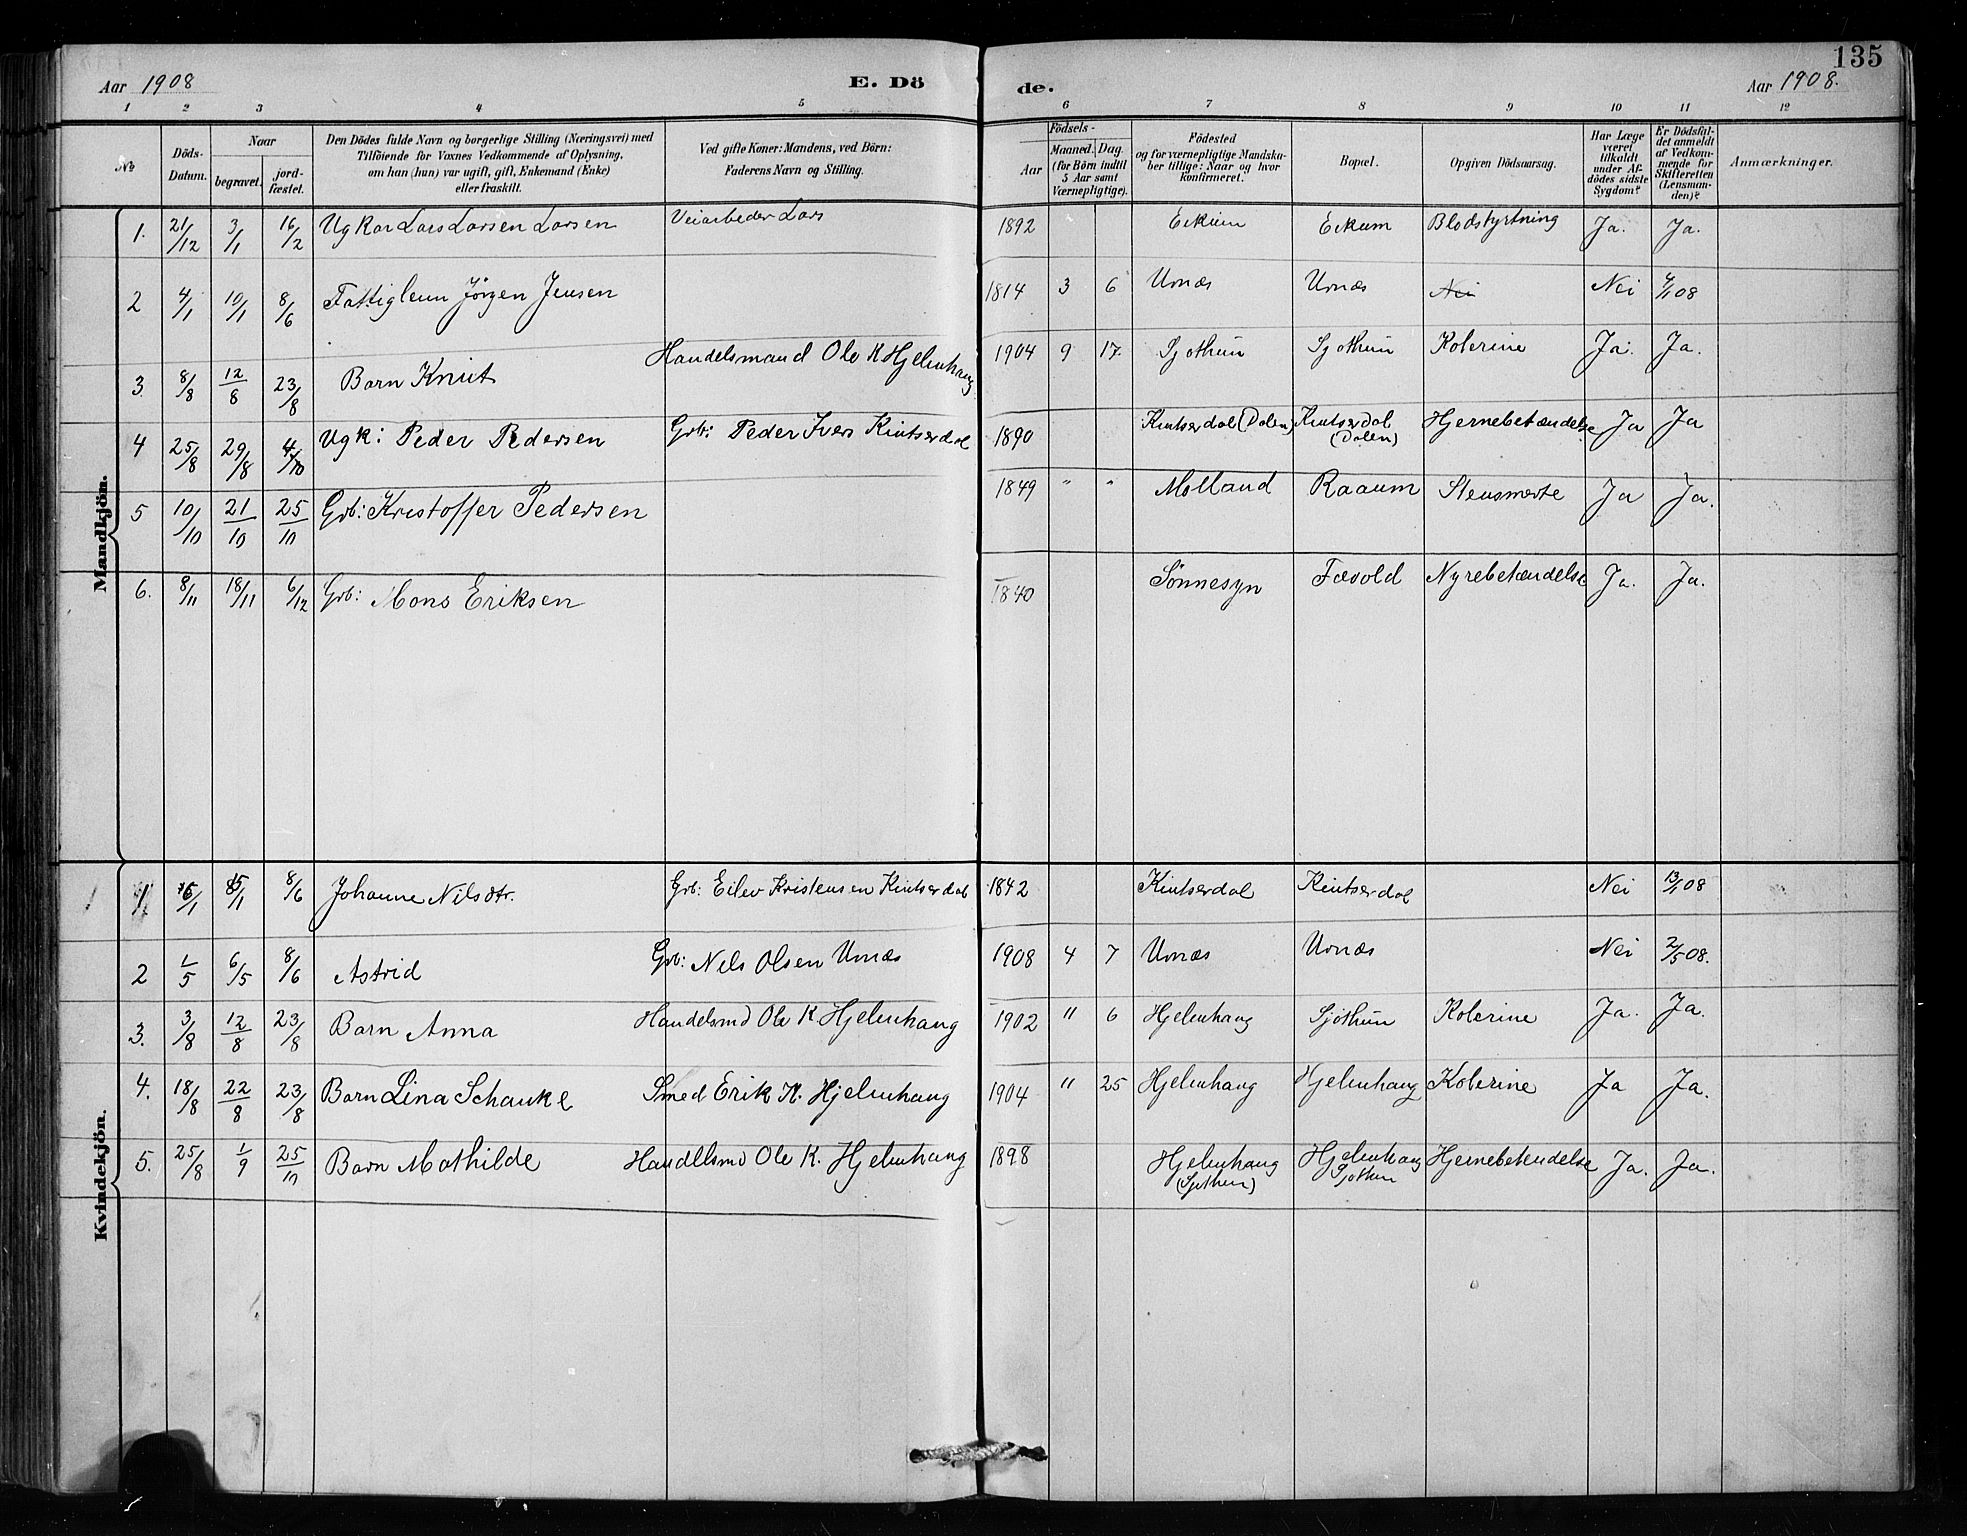 135
Aar 1908 E. Dö de. Aar 1908.
1 2 3 4 5 6 7 8 9 10 11 12
№ Döds-Datum. Naar begravet. jord-fæstet. Den Dödes fulde Navn og borgerlige Stilling (Næringsvei) med Tilföiende for Voxnes Vedkommende af Oplysning, om han (hun) var ugift, gift, Enkemand (Enke) eller fraskilt. Ved gifte Koner: Mandens, ved Börn: Faderens Navn og Stilling. Födsels- Aar Maaned. Dag. (for Börn indtil 5 Aar samt Værnepligtige). Födested og for værnepligtige Mandska-ber tillige: Naar og hvor konfirmeret. Bopæl. Opgiven Dödsaarsag. Har Læge været tilkaldt under Af-dödes sidste Sygdom? Er Dödsfal-det anmeldt af Vedkom-mende for Skifteretten (Lensman-den)? Anmærkninger.
Mandkjön.
1. 21/12 3/1 16/2 Ug Kar Lars Larsen Larsen Veiarbeder Lars 1892 Eikum Eikum Blodstyrtning Ja. Ja.
2 4/1 10/1 8/6 Fattiglem Jörgen Jensen 1814 3 6 Urnæs Urnæs Nei Nei 4/1 08
3. 8/8 12/8 23/8 Barn Knut Handelsmand Ole K Hjelmhaug 1904 9 17. Sjøthun Sjøthun Kolerine Ja. Ja.
4 25/8 29/8 4/10 Ugk: Peder Pedersen Grb: Peder Ivers Kintserdal 1890 Kintserdal (Dalen) Kintserdal (Dalen) Hjernebetændelse Ja Ja
5 10/10 21/10 25/10 Grb: Kristoffer Pedersen 1849 " " Molland Raaum Stensmerte Ja Ja.
6. 8/11 18/11 6/12 Grb: Mons Eriksen 1840 Sønnesyn Fævold Nyrebetændelse Ja. Ja.
Kvindekjön.
1 /1 /1 8/6 Johanne Nilsdtr. Grb: Eilev Kristensen Kintserdal 1842 Kintserdal Kintserdal Nei 13/1 08
2 1/5 6/5 8/6 Astrid Grb: Nils Olsen Urnæs 1908 4 7 Urnæs Urnæs Nei 2/5 08.
3. 3/8 12/8 23/8 Barn Anna Handelsmd Ole K. Hjelmhaug 1902 " 6 Hjelmhaug Sjøthun Kolerine Ja. Ja.
4. 18/8 22/8 23/8 Barn Lina Schanke Smed Erik K. Hjelmhaug 1904 " 25 Hjelmhaug Hjelmhaug Kolerine Ja Ja.
5. 25/8 1/9 25/10 Barn Mathilde Handelsmd Ole K. Hjelmhaug 1898 Hjelmhaug (Sjøthun) Hjelmhaug Sjøthun Hjernebetendelse Ja. Ja.